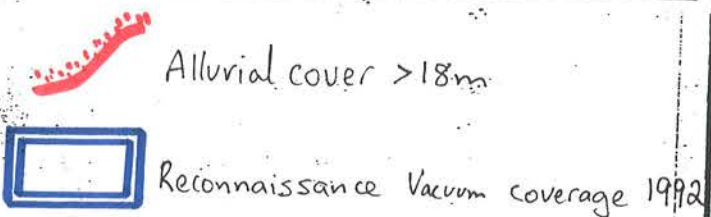 Alluvial cover >18m
Reconnaissance Vacuum coverage 1992